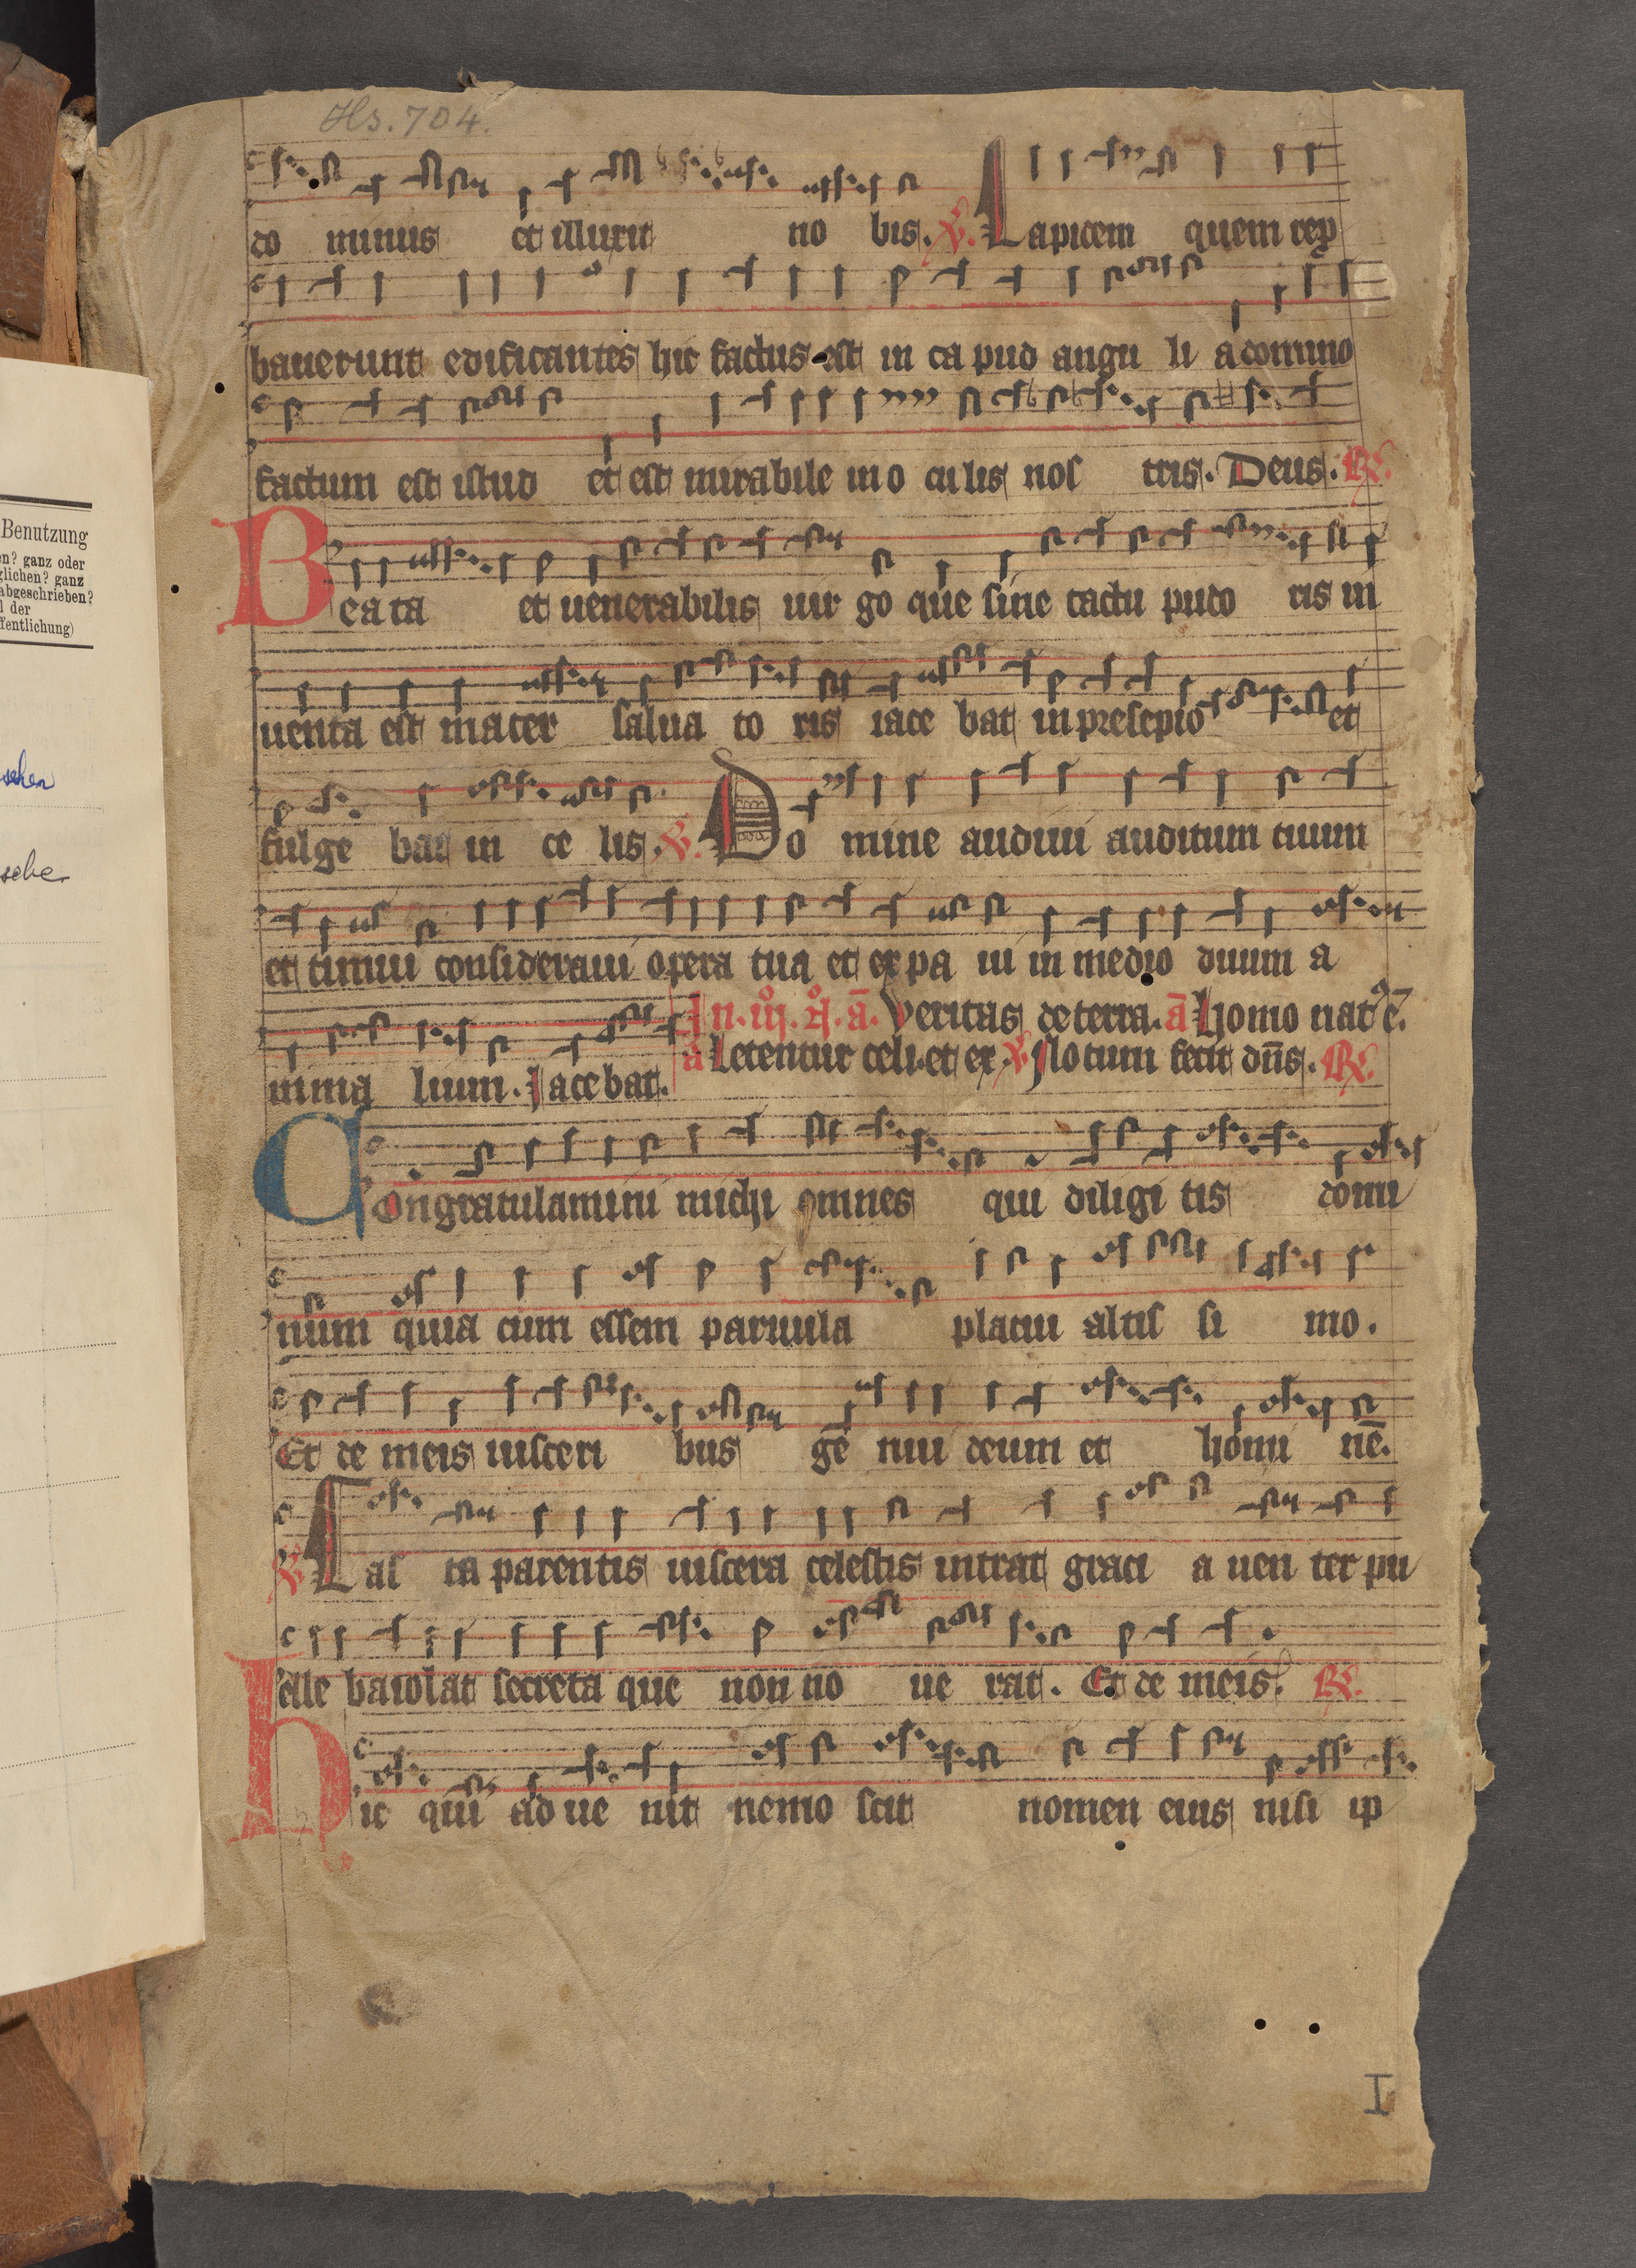 Hs. 704.
do minus et illuxit no bis. V. Lapidem quem rep
bauerunt edificantes hic factus est in ca pud angu li a domino
factum est istud et est mirabile in o culis nos tris. Deus. R.
Beata et uenerabilis uir go que sine tactu pudo ris in
uenta est mater salua to ris iace bat in presepio et
fulge bat in ce lis. V. Do mine audiui auditum tuum
et timui consideraui opera tua et expa ui in medio duum a
In. iij. . a. Veritas de terra. a Homo nat
a Letentur celi. et ex. V Notum fecit dns. R.
nima lium. Iacebat.
Congratulamini michi omnes qui diligi tis domi
num quia cum essem paruula placui altis si mo.
Et de meis uisceri bus ge nui deum et homi ne.
V Cas ta parentis uiscera celestis intrat graci a uen ter pu
elle baiolat secreta que non no ue rat. Et de meis. R.
Hic qui ad ue nit nemo scit nomen eius nisi ip
I
Benutzung
en? ganz oder
glichen? ganz
abgeschrieben?
l der
fentlichung)